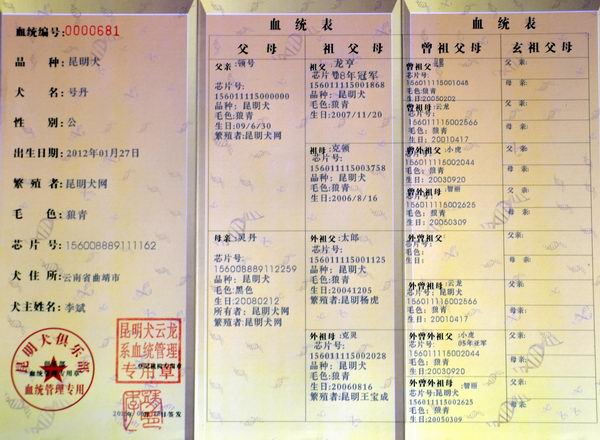 血统编号:0000681
品 种:昆明犬
犬 名:号丹
性 别:公
出生日期:2012年01月27日
繁殖者:昆明犬网
毛 色:狼青
芯片号:156008889111162
犬住所:云南省曲靖市
犬主姓名:李斌
昆明犬俱乐部
血统管理专用
昆明犬云龙
系血统管理
专用章
血统表
父母
祖父母
父亲:顿号
芯片号:
156011115000000
品种:昆明犬
毛色:狼青
生日:09/6/30
繁殖者:昆明犬网
祖父:龙亨
芯片号:
08年冠军
156011115001868
品种:昆明犬
毛色:狼青
生日:2007/11/20
祖母:克顿
芯片号:
156011115003758
品种:昆明犬
毛色:狼青
生日:2006/8/16
母亲:灵丹
芯片号:
1560088889112259
品种:昆明犬
毛色:黑色
生日:20080212
所有者:昆明犬网
繁殖者:昆明犬网
外祖父:太郎
芯片号:
156011115001125
品种:昆明犬
毛色:狼青
生日:20041205
繁殖者:昆明杨虎
外祖母:克灵
芯片号:
156011115002028
品种:昆明犬
毛色:狼青
生日:20060816
繁殖者:昆明王宝成
血统表
曾祖父母
玄祖父母
曾祖父:
芯片号:
156011115001048
毛色:狼青
生日:20050202
曾祖母:云龙
156011115002566
毛色:狼青
生日:20010417
曾外祖父:小虎
芯片号:
156011115002044
毛色:狼青
生日:20030920
曾外祖母:智丽
156011115002625
毛色:狼青
生日:20050309
外曾祖父:
芯片号:
毛色:
生日:
外曾祖母:云龙
品种:昆明犬
156011112002566
毛色:狼青
生日:20010417
外曾外祖父:小虎
芯片号:
05年亚军
156011115002044
毛色:狼青
生日:20030920
外曾外祖母:智丽
品种:昆明犬
156011115002625
毛色:狼青
生日:20050309
父亲:
母亲:
父亲:
母亲:
父亲:
母亲:
父亲:
母亲:
父亲:
母亲:
父亲:
母亲:
父亲:
母亲:
父亲:
母亲: